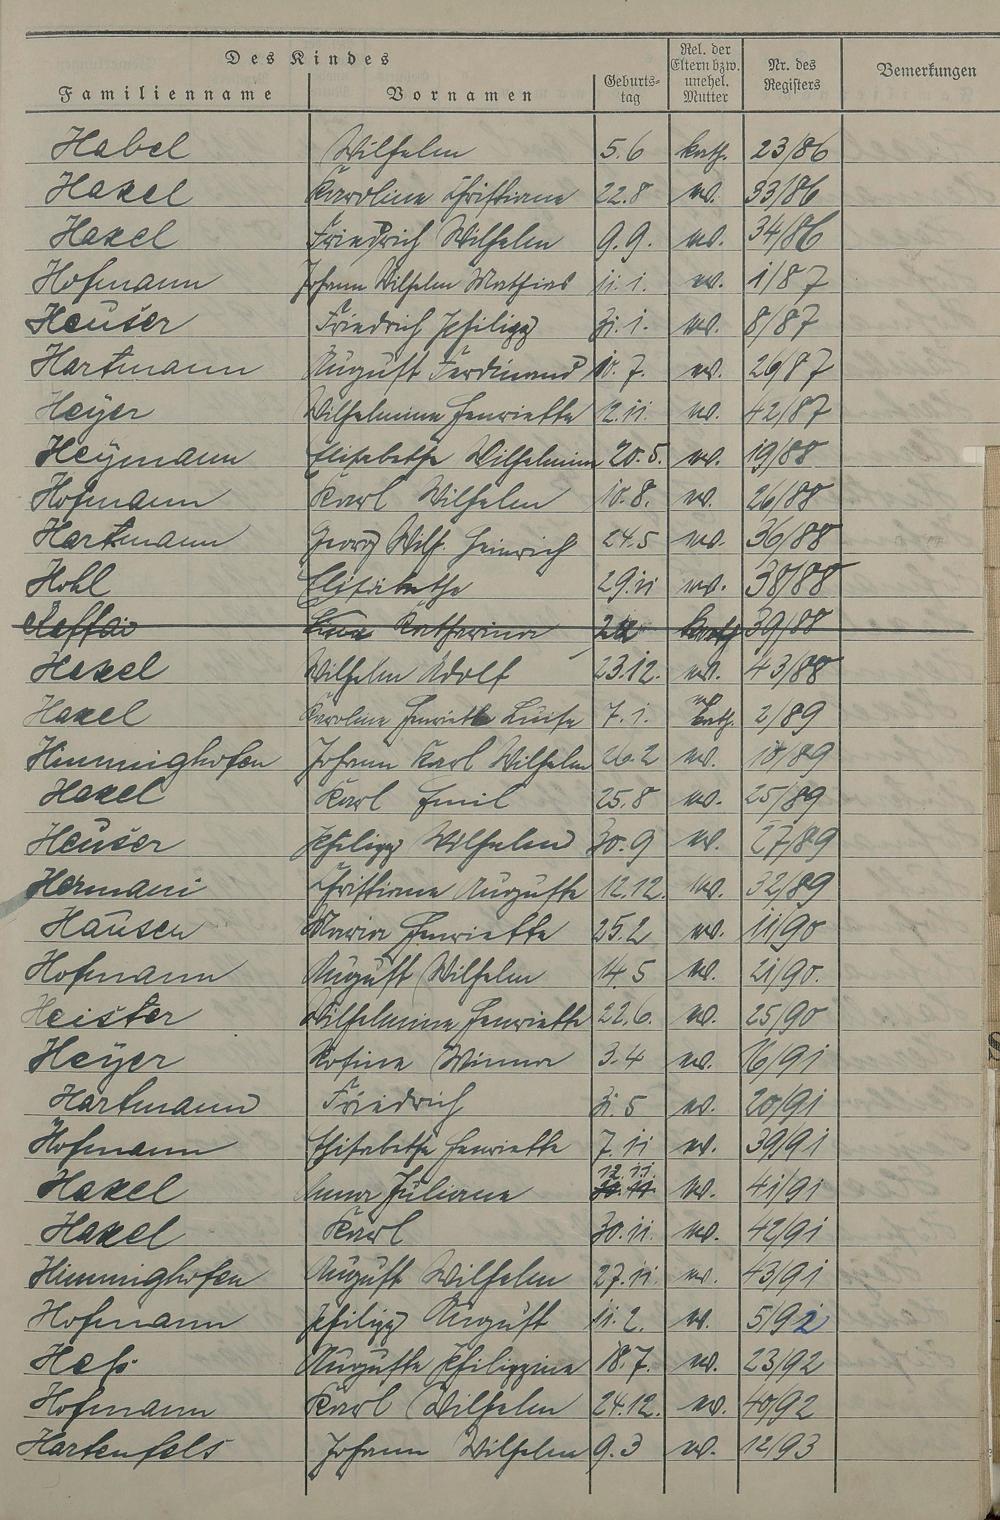 Des Kindes
Familienname Vornamen Geburts-tag Rel. der Eltern bzw. unehel. Mutter Nr. des Registers Bemerkungen
Habel Wilhelm 5.6 kath. 23/86
Haxel Karoline Christiane 22.8 ev. 33/86
Haxel Friedrich Wilhelm 9.9. ev. 34/86
Hofmann Johann Wilhelm Mathias 11.1. ev. 1/87
Heuser Friedrich Philipp 31.1. ev. 8/87
Hartmann August Ferdinand 10.7. ev. 26/87
Heyer Wilhelmine Henriette 12.11 ev. 42/87
Heymann Elisabethe Wilhelmine 20.5. ev. 19/88
Hofmann Karl Wilhelm 10.8. ev. 26/88
Hartmann Georg Wilh. Heinrich 24.5 ev. 36/88
Hohl Elisabethe 29.11 ev. 38/88
Katharina kath 39/88
Haxel Wilhelm Adolf 23.12. ev. 43/88
Haxel Karoline Henriette Luise 7.1. ev. kath. 2/89
Himmighofen Johann Karl Wilhelm 26.2 ev. 10/89
Haxel Karl Emil 25.8 ev. 25/89
Heuser Philipp Wilhelm 30.9 ev. 27/89
Hermani Christiane Auguste 12.12. ev. 32/89
Hausen Maria Henriette 25.2 ev. 11/90
Hofmann August Wilhelm 14.5 ev. 21/90.
Heister Wilhelmine Henriette 22.6. ev. 25/90
Heyer Rosine Minna 3.4 ev. 16/91
Hartmann Friedrich 31.5 ev. 20/91
Hofmann Elisabethe Henriette 7.11 ev. 39/91
Haxel Anna Juliane 12.11. ev. 41/91
Haxel Karl 30.11. ev. 42/91
Himmighofen August Wilhelm 27.11 ev. 43/91
Hofmann Philipp August 11.2. ev. 5/92
Heß Auguste Philippine 18.7. ev. 23/92
Hofmann Karl Wilhelm 24.12. ev. 40/92
Hartenfels Johann Wilhelm 9.3 ev. 12/93